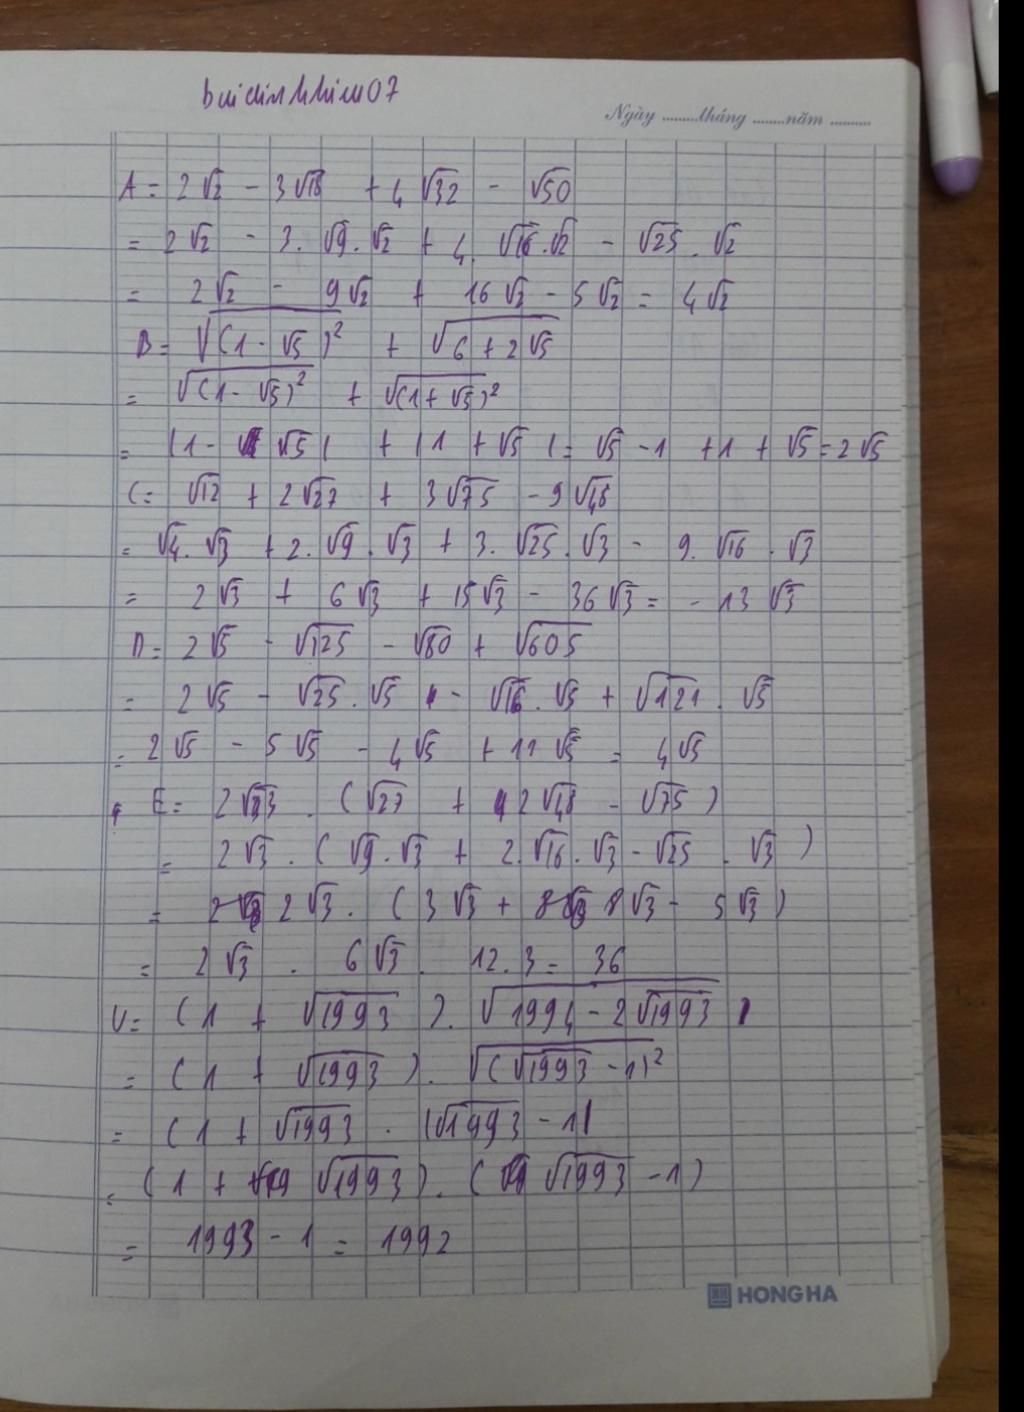 buidinhhieu07
Ngày ........tháng ........năm ..........
A = 2√2 - 3√18 + 4√32 - √50
= 2√2 - 3.√9.√2 + 4.√16.√2 - √25.√2
= 2√2 - 9√2 + 16√2 - 5√2 = 4√2
B = √(1 - √5)² + √6 + 2√5
= √(1 - √5)² + √(1 + √5)²
= |1 - √5| + |1 + √5| = √5 - 1 + 1 + √5 = 2√5
C = √12 + 2√27 + 3√75 - 9√48
= √4.√3 + 2.√9.√3 + 3.√25.√3 - 9.√16.√3
= 2√3 + 6√3 + 15√3 - 36√3 = -13√3
D = 2√5 - √125 - √80 + √605
= 2√5 - √25.√5 - √16.√5 + √121.√5
= 2√5 - 5√5 - 4√5 + 11√5 = 4√5
E = 2√3 . (√27 + 2√48 - √75)
= 2√3 . (√9.√3 + 2.√16.√3 - √25.√3)
= 2√3 . (3√3 + 8√3 - 5√3)
= 2√3 . 6√3 . 12.3 = 36
V = (1 + √1993).√1994 - 2√1993
= (1 + √1993).√(√1993 - 1)²
= (1 + √1993 . |√1993 - 1|
= (1 + √1993).(√1993 - 1)
= 1993 - 1 = 1992
HONG HA